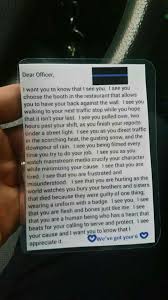 Dear Officer,
I want you to know that I see you. I see you
choose the booth in the restaurant that allows
you to have your back against the wall. I see you
walking to your next traffic stop while you hope
that it isn't your last. I see you pulled over, two
hours past your shift, as you finish your reports
under a street light. I see you as you direct traffic
in the scorching heat, the guiding snow, and the
downpour of rain. I see you being filmed every
time you try to do your job. I see you as you
watch mainstream media crucify your character
while minimizing your cause. I see that you are
tired. I see that you are frustrated and
misunderstood. I see that you are hurting as the
world watches you bury your brothers and sisters
that died because they were guilty of one thing,
wearing a uniform with a badge. I see you. I see
that you are flesh and bones just like me. I see
that you are a human being who has a heart that
beats for your calling to serve and protect. I see
your cause and I want you to know that I
appreciate it. We've got your 6